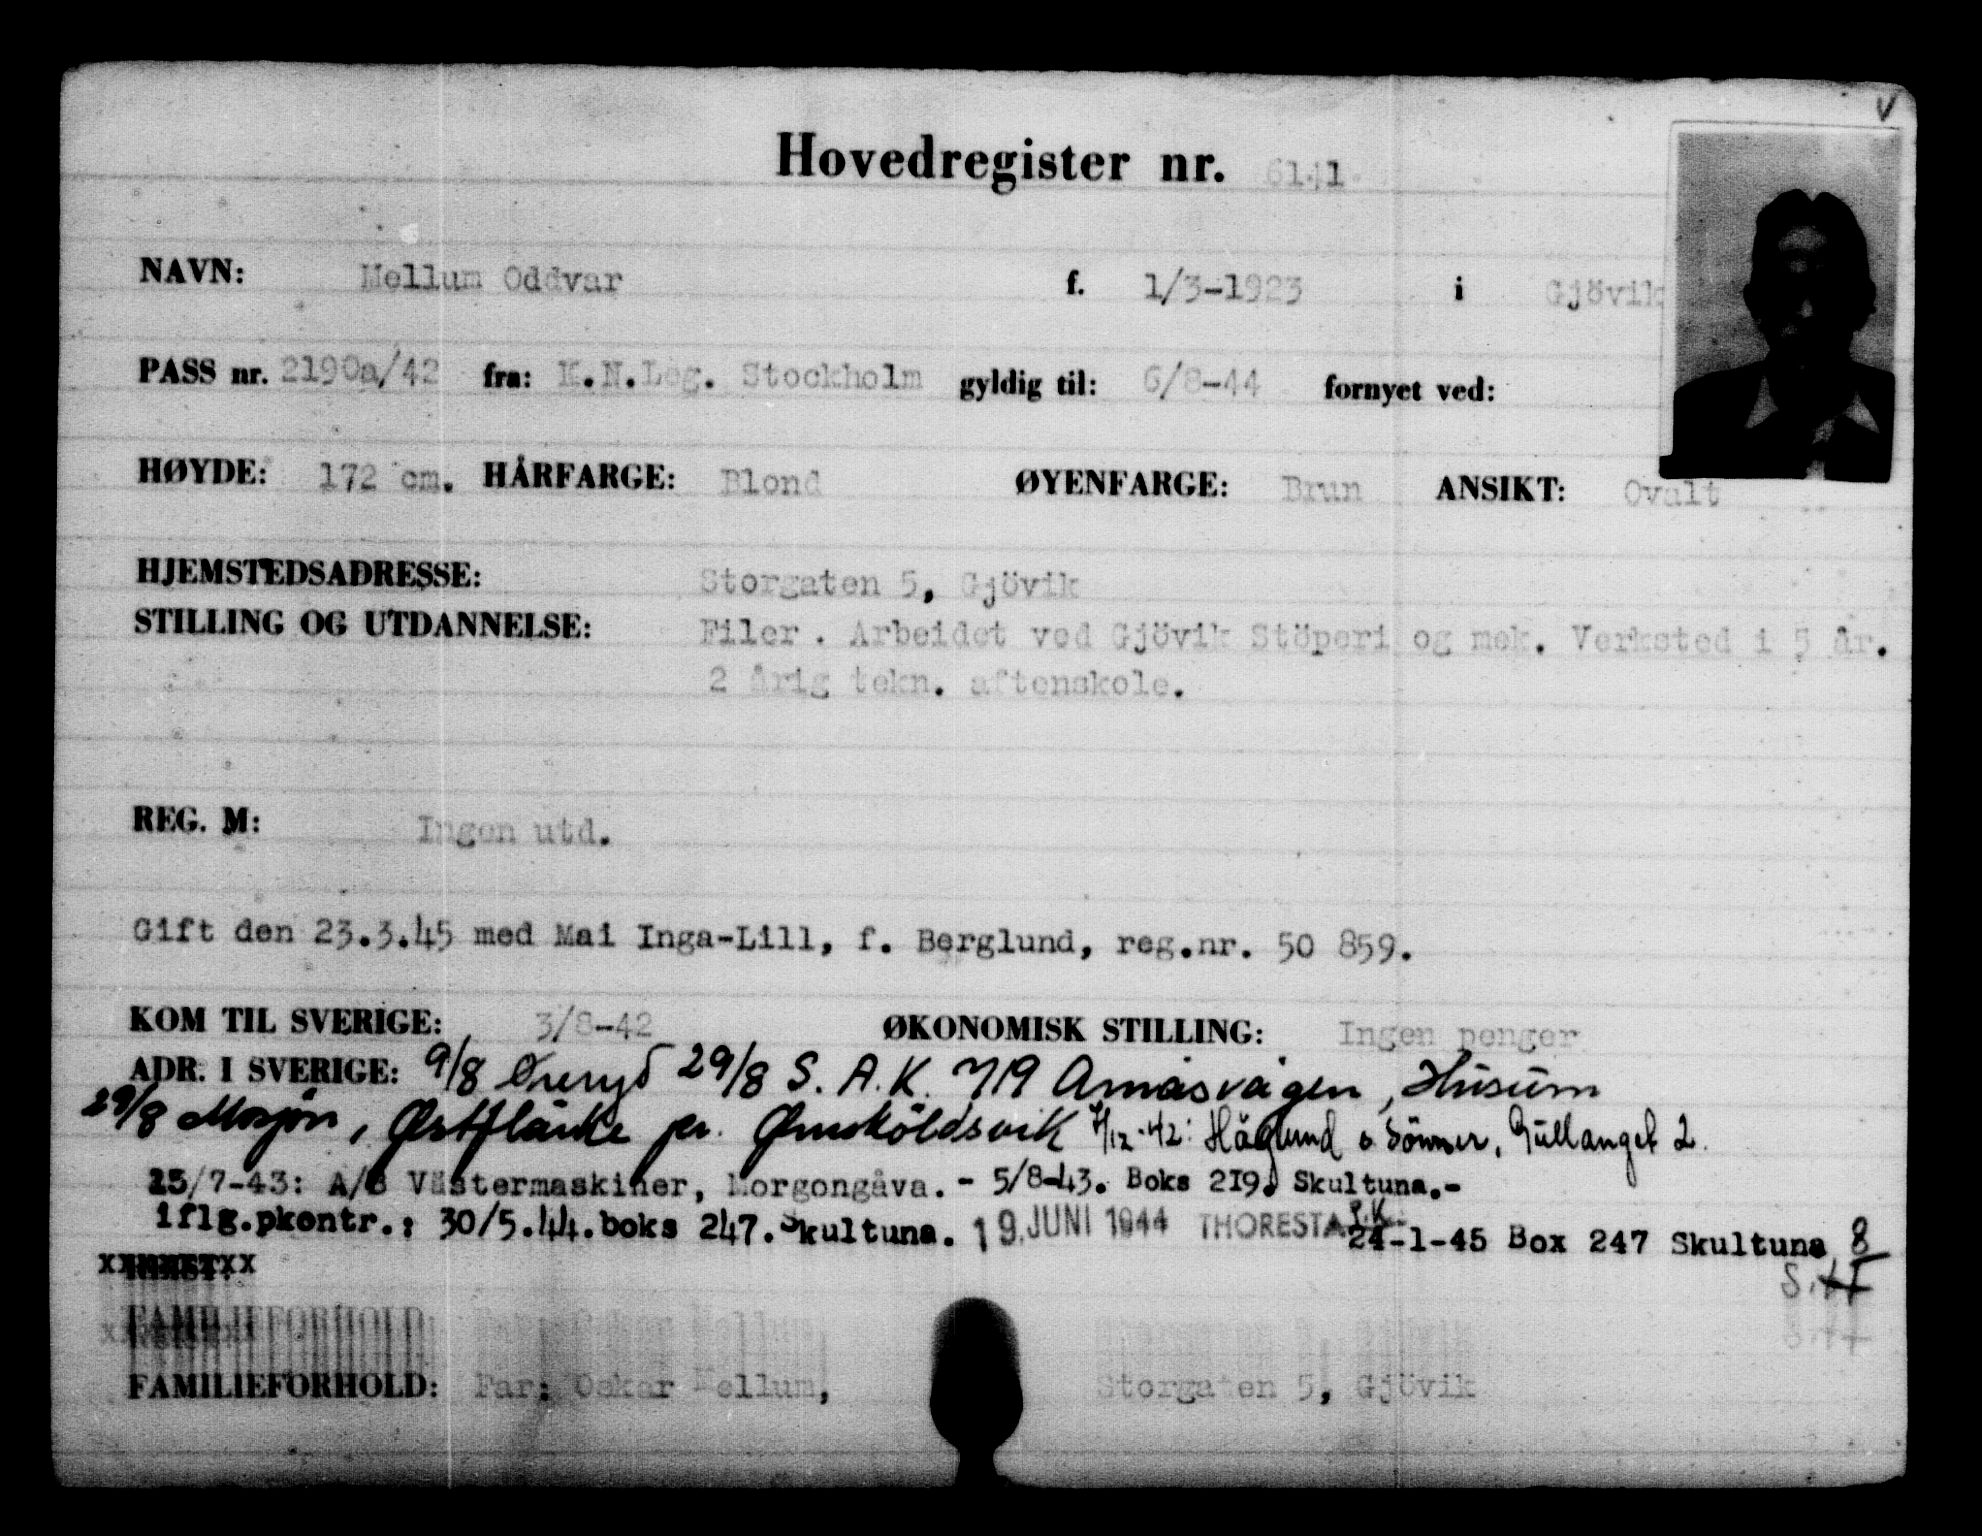 V
Hovedregister nr. 6141
NAVN: Mellum Oddvar f. 1/3-1923 i Gjövik
PASS nr. 2190a/42 fra: K.N.Leg. Stockholm gyldig til: 6/8-44 fornyet ved:
HØYDE: 172 cm. HÅRFARGE: Blond ØYENFARGE: Brun ANSIKT: Ovalt
HJEMSTEDSADRESSE: Storgaten 5, Gjövik
STILLING OG UTDANNELSE: Filer. Arbeidet ved Gjövik Stöperi og mek. Verksted i 5 år.
2 årig tekn. aftenskole.
REG. M: Ingen utd.
Gift den 23.3.45 med Mai Inga-Lill, f. Berglund, reg.nr. 50 859.
KOM TIL SVERIGE: 3/8-42 ØKONOMISK STILLING: Ingen penger
ADR. I SVERIGE: 9/8 Øreryd 29/8 S.A.K. 719 Arnäsvägen, Husum
29/8 Mosjön, Østfl pr. Ørnsköldsvik 4/12-42: Häglund & Sönner, Gullänget 2.
15/7-43: A/B Västermaskiner, Morgongåva. - 5/8-43. Boks 219. Skultuna.-
iflg.pkontr.: 30/5.44. boks 247. Skultuna. 19. JUNI 1944 THORESTA P.K. 24-1-45 Box 247 Skultuna 8
S.
FAMILIEFORHOLD: Far: Oskar Mellum, Storgaten 5, Gjövik